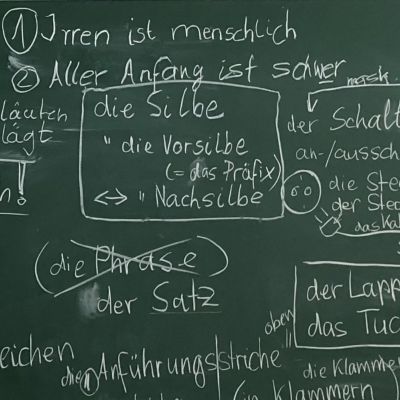 ① Irren ist menschlich
② Aller Anfang ist schwer
mask.
läuten
lägt
die Silbe
" die Vorsilbe
(= das Präfix)
<-> " Nachsilbe
der Schalt
an-/aussch
die Ste
der Stec
das Ka
n!
(die Phrase)
der Satz
der Lapp
das Tuc
oben
eichen
die Anführungsstriche
die Klammer
(in Klammern